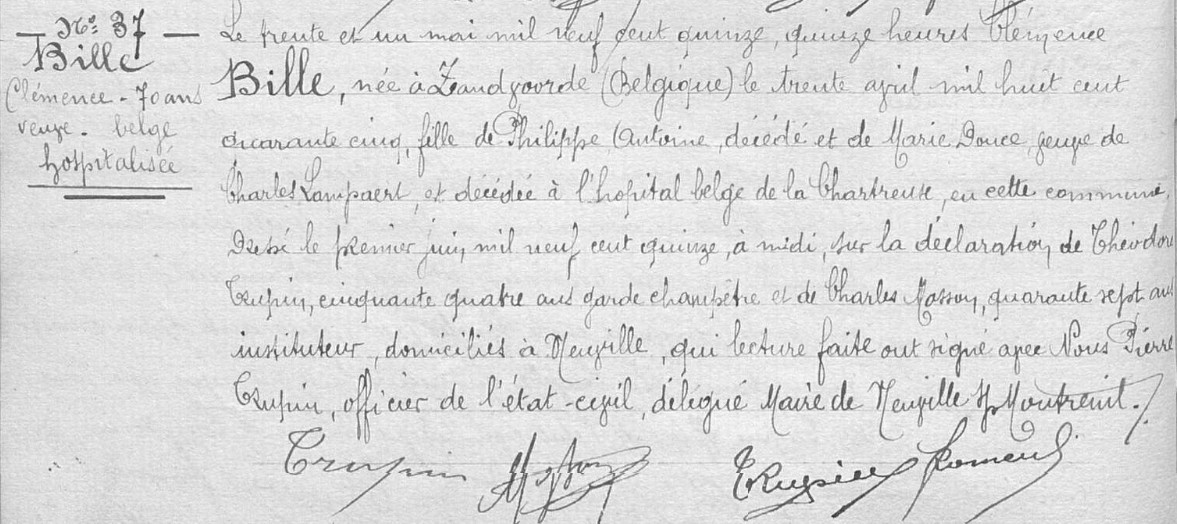 N° 37
Bille
Clémence - 70 ans
veuve - belge
hospitalisée
Le trente et un mai mil neuf cent quinze, quinze heures Clémence
Bille, née à Zandvoorde (Belgique) le trente avril mil huit cent
quarante cinq, fille de Philippe Antoine, décédé et de Marie Douce, veuve de
Charles Lampaert, est décédée à l'hopital belge de la Chartreuse, en cette commune,
Dressé le premier juin mil neuf cent quinze, à midi, sur la déclaration de Théodore
Trupin, cinquante quatre ans garde champêtre et de Charles Masson, quarante sept ans
instituteur, domiciliés à Neuville, qui lecture faite ont signé avec Nous Pierre
Trupin, officier de l'état-civil, délégué Maire de Neuville s/ Montreuil.
Trupin Masson Trupin